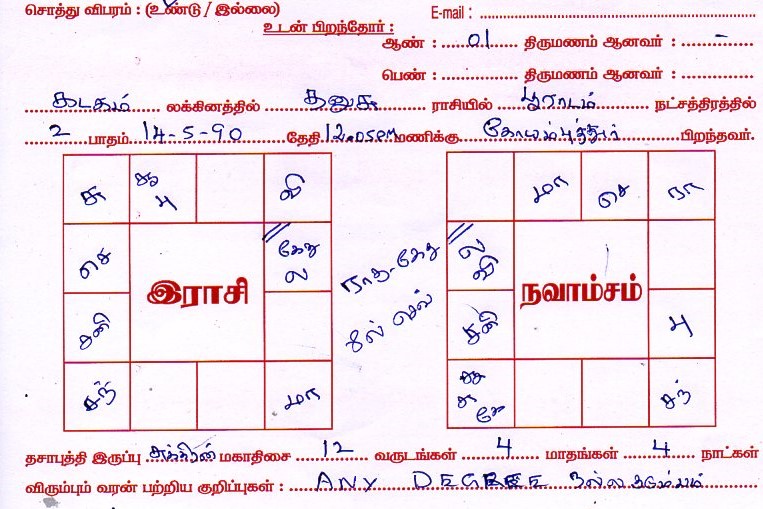 சொத்து விபரம் : (உண்டு / இல்லை)
E-mail :
உடன் பிறந்தோர் :
ஆண் : 01 திருமணம் ஆனவர் : -
பெண் : திருமணம் ஆனவர் :
கடகம் லக்கினத்தில் தனுசு ராசியில் பூராடம் நட்சத்திரத்தில்
2 பாதம் 14-5-90 தேதி 12.05PM மணிக்கு கோயம்புத்தூர் பிறந்தவர்.
சு சூ பு வி
செ கேது ல
இராசி
சனி
சந் மா
ராகு-கேது
மா செ ரா
ல வி
நவாம்சம்
சனி பு
சூ சு கே சந்
தசாபுத்தி இருப்பு சுக்கிரன் மகாதிசை 12 வருடங்கள் 4 மாதங்கள் 4 நாட்கள்
விரும்பும் வரன் பற்றிய குறிப்புகள் : ANY DEGREE நல்ல